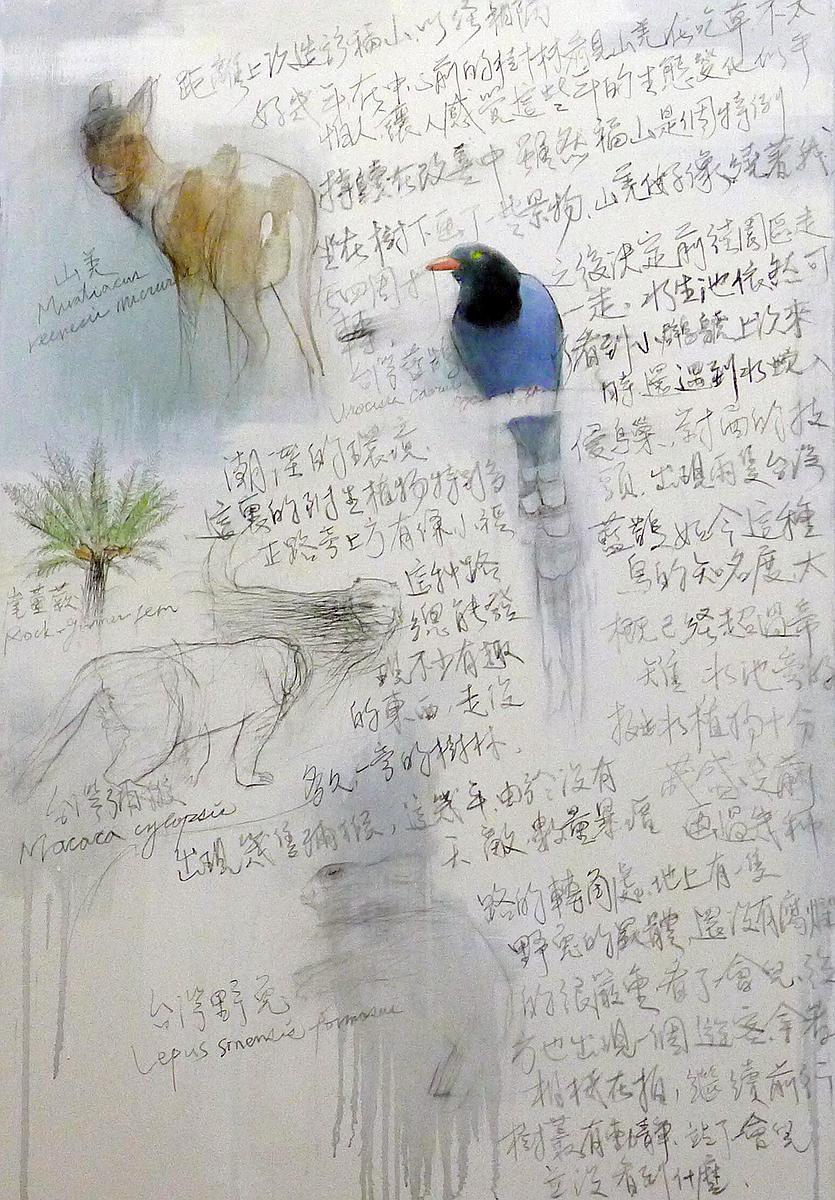 距離上次造訪福山,以經相隔
好幾年在中心前的樟樹林看見山羌在吃草,不太
怕人讓人感覺這些年的生態變化似乎
持續在改善中 雖然福山是個特例
坐在樹下画了一些景物,山羌好像繞著我
在四周打
轉.
山羌
Muntiacus
reevesii micrurus
台灣藍鵲
Urocissa caerulea
之後決定前往園區走
一走. 水生池依然可
看到小鸊鷉上次來
時,還遇到水蛇入
侵鳥巢,對面的枝
頭,出現兩隻台灣
藍鵲如今這種
鳥的知名度,大
概已經超過帝
雉 水池旁的
挺水植物十分
茂盛,
潮溼的環境
這裏的附生植物特別多
正路旁上方有條小徑
這種路
總能發
現不少有趣
的東西,走沒
多久,旁的樹林,
出現幾隻獼猴, 這幾年由於沒有
天敵,數量暴增
崖薑蕨
Rock-ginner fern
台灣獼猴
Macaca cyclopsis
路的轉角處,地上有一隻
野兔的屍體,還沒有腐爛
的很嚴重,看了會兒,後
方也出現一個遊客,拿著
相機在拍,繼續前行
樹叢有動靜.站了會兒
並沒看到什麼.
台灣野兔
Lepus sinensis formosus